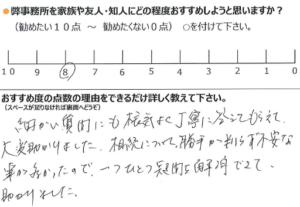 ●弊事務所を家族や友人・知人にどの程度おすすめしようと思いますか?
(勧めたい10点 ～ 勧めたくない0点) ○を付けて下さい。
10 9 8 7 6 5 4 3 2 1 0
おすすめ度の点数の理由をできるだけ詳しく教えて下さい。
(スペースが足りなければ裏面へどうぞ)
細かい質問にも根気よく丁寧に答えてもらえて、
大変助かりました。相続について、勝手が判らず不安な
事が多かったので、一つひとつ疑問を解消できて、
助かりました。